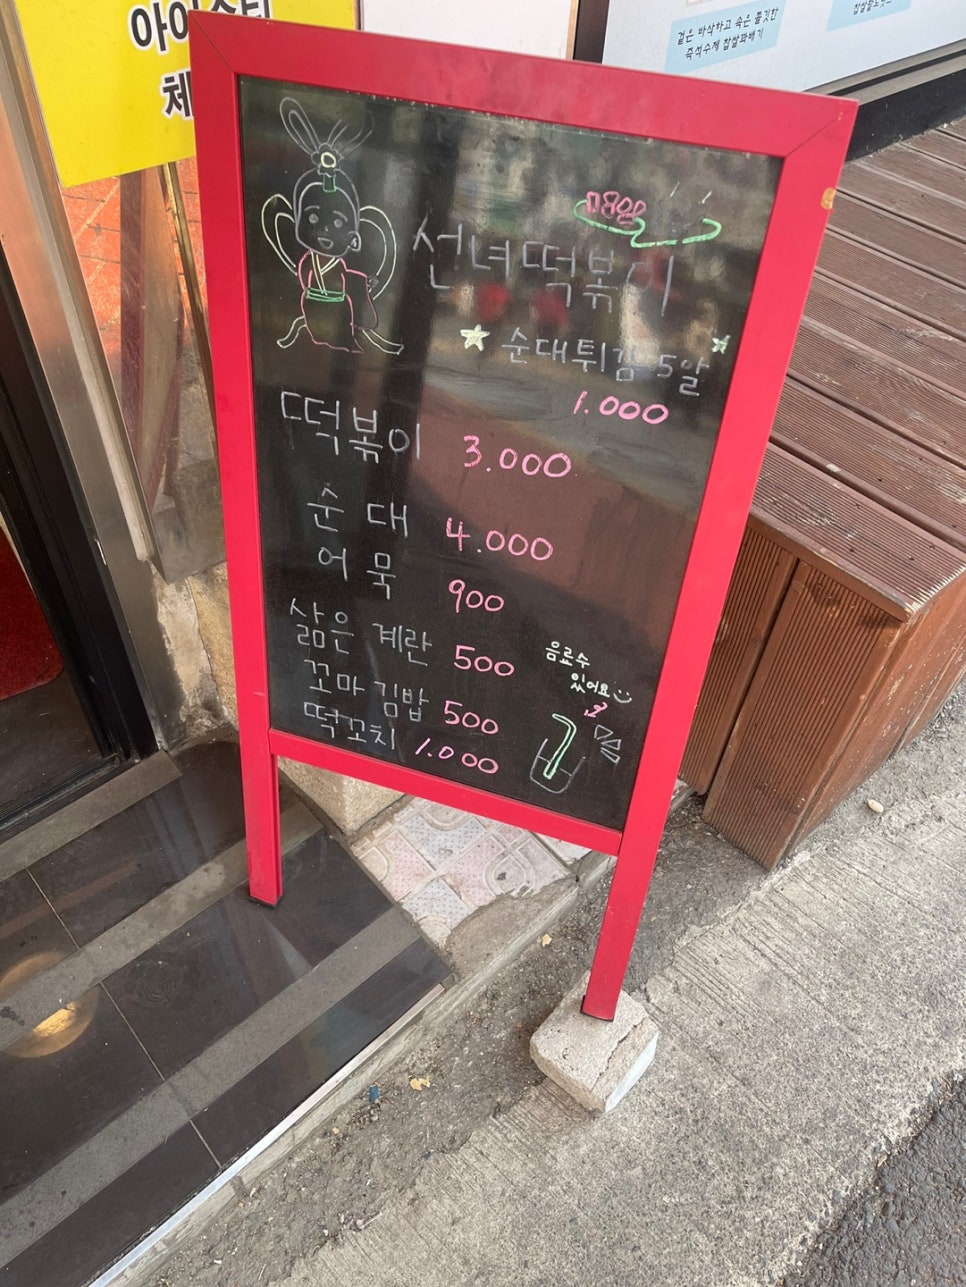 아이스티
체
겉은 바삭하고 속은 쫄깃한
즉석수제 찹쌀꽈배기
찹쌀팥도넛츠
매콤
선녀떡볶이
순대튀김 5알
1.000
떡볶이 3.000
순대 4.000
어묵 900
삶은 계란 500
꼬마김밥 500
떡꼬치 1.000
음료수
있어요